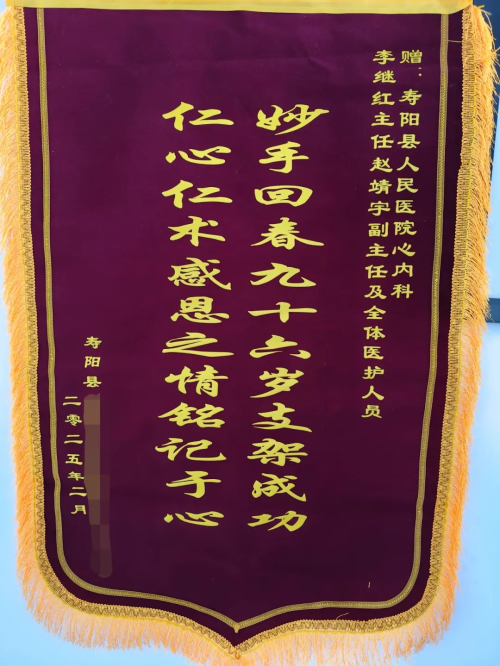 赠：寿阳县人民医院心内科
李继红主任赵靖宇副主任及全体医护人员
妙手回春九十六岁支架成功
仁心仁术感恩之情铭记于心
寿阳县
二零二五年二月